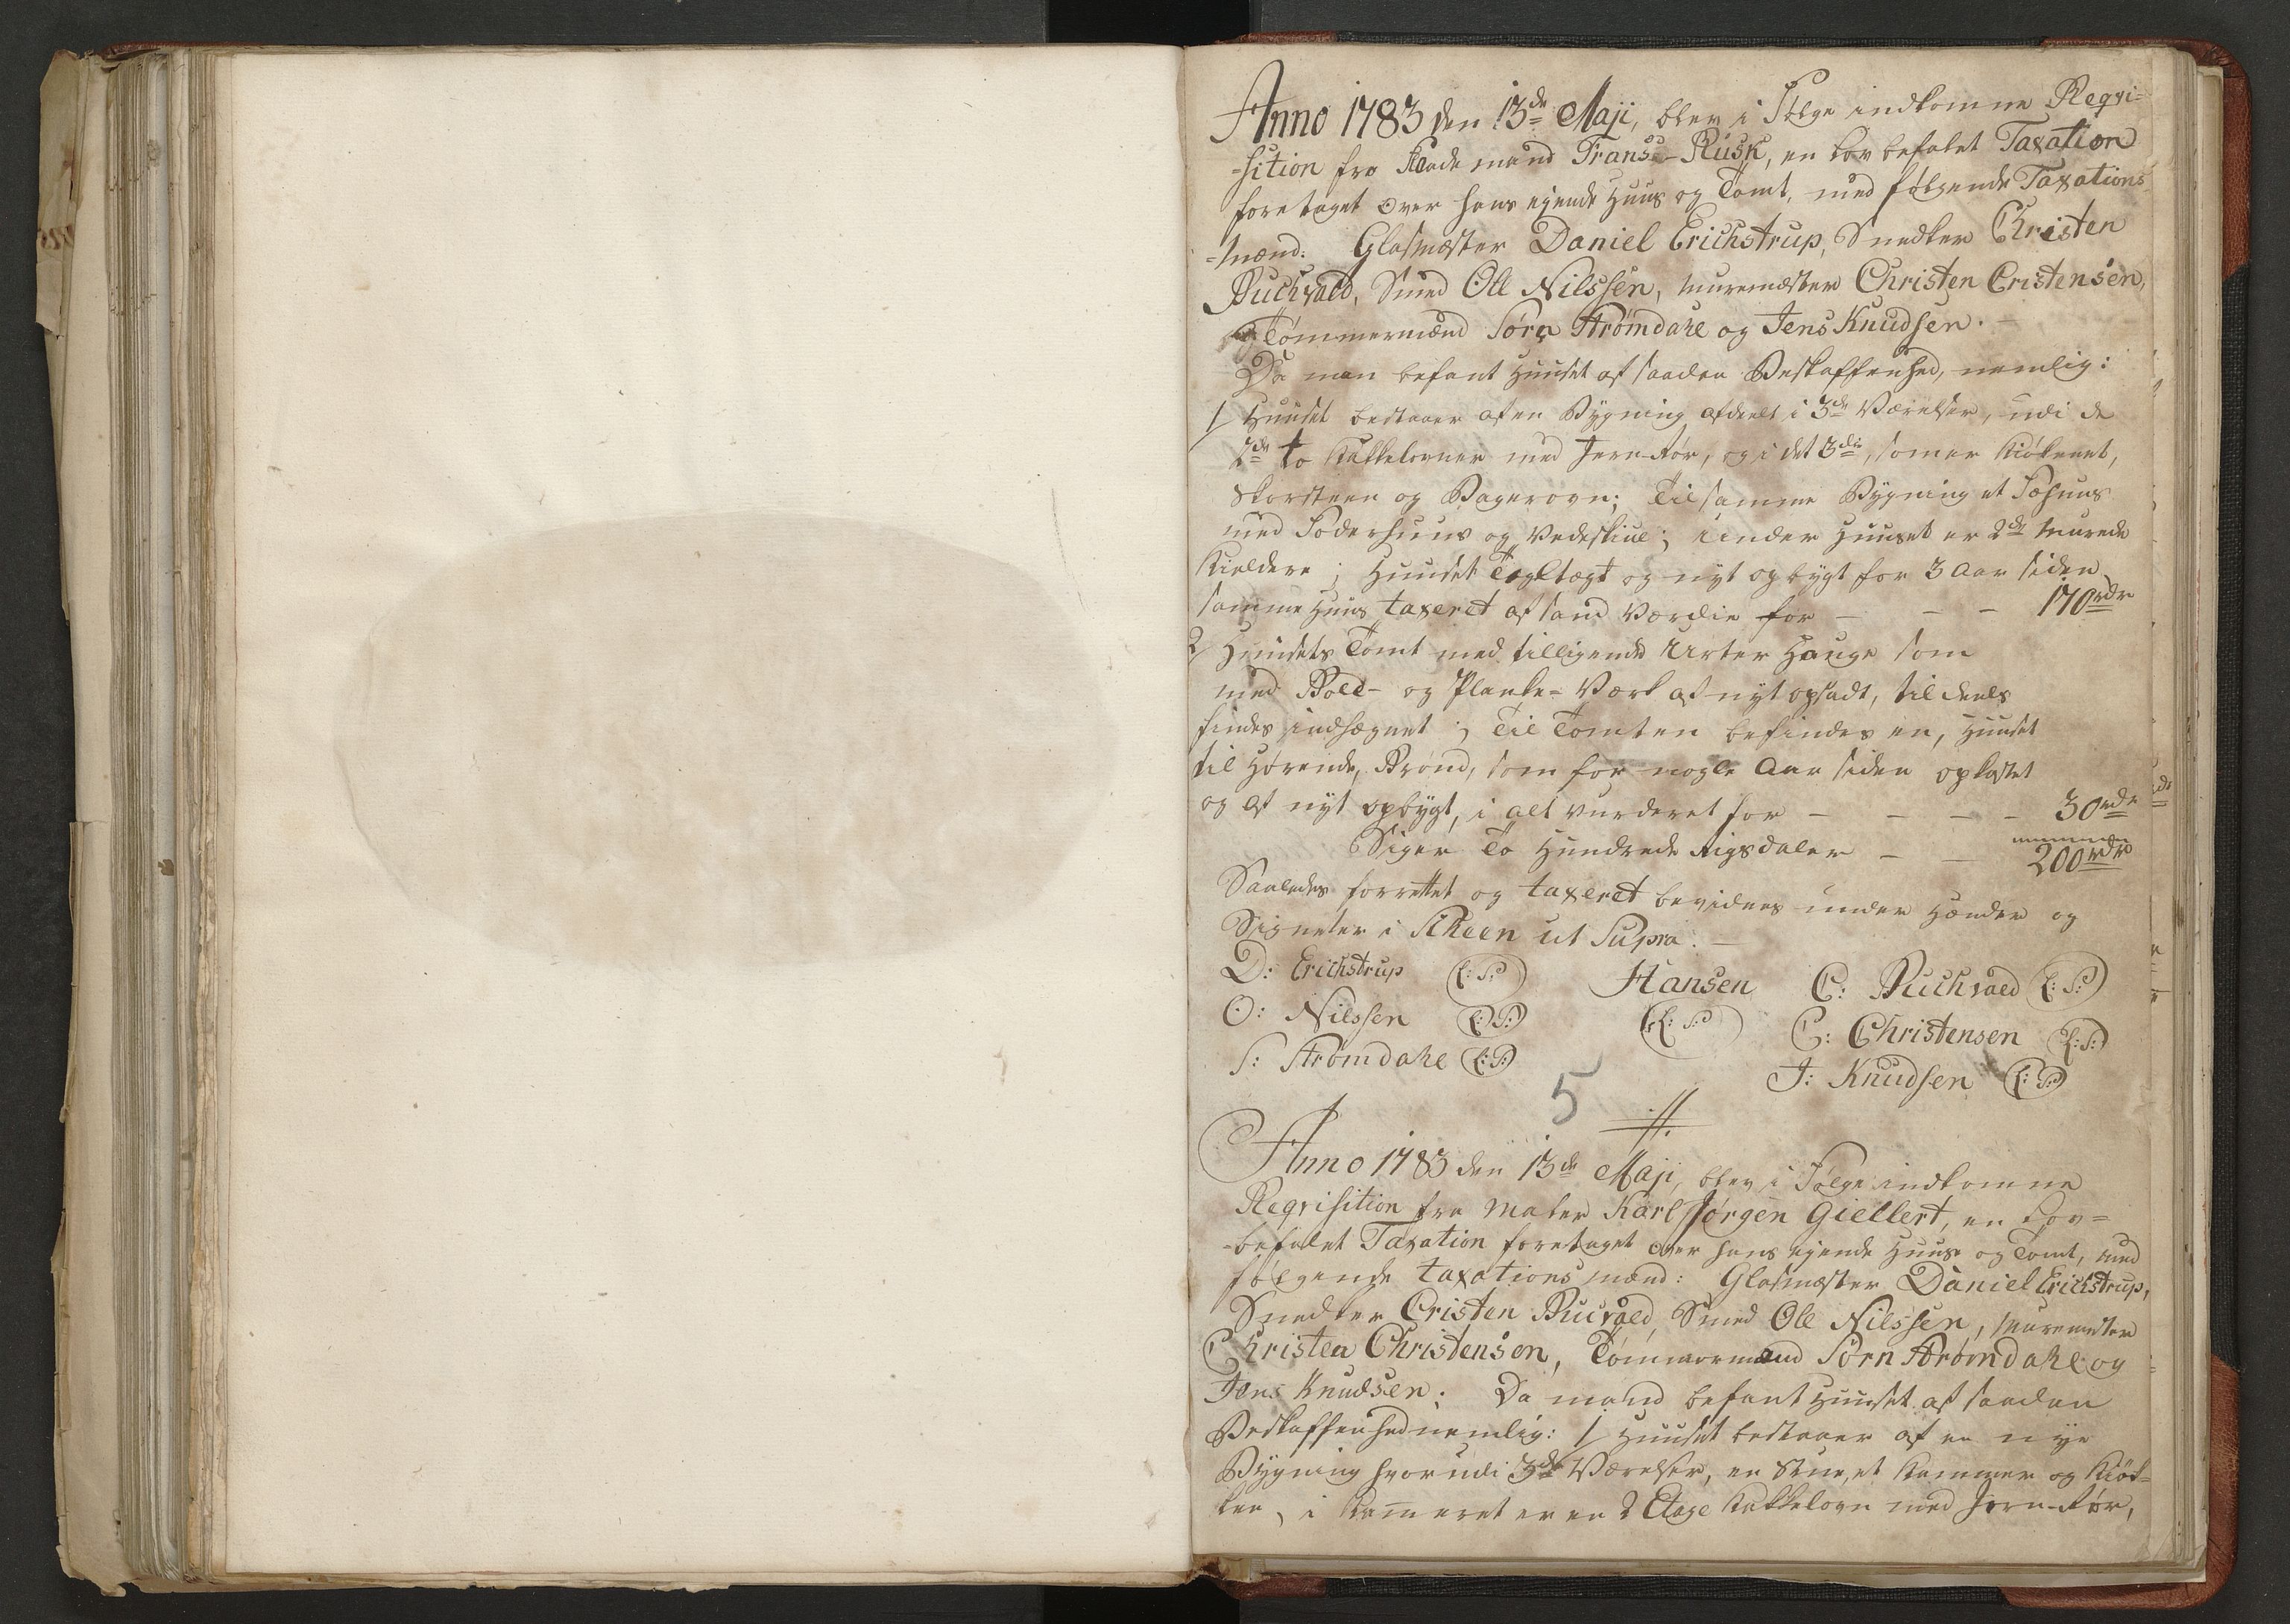 Anno 1783 den 13de Maji, blev i Følge indkomne Reqvi=
=sition fra Stademand Frans Rusk, en lov befalet Taxation
foretaget over hans ejende Huus og Tomt, med følgende Taxations
=Mænd: Glasmæster Daniel Erichstrup, Snedker Christen
Buchvald, Smed Ole Nilssen, Muremæster Christen Cristensen,
Tømmermænd Sørn Strømdahl og Jens Knudsen. –
Da man befant Huuset af saadan Beskaffenhed, nemlig:
1/ Huuset bestaaer af en Bygning afdeelt i 3de Værelser, udi de
2de to Kakkelovner med Jern-Rør, og i det 3die, som er Kiøkenet,
Skorsteen og Bagerovn; Til samme Bygning et Fæhuus
med Foderhuus og Vedeskiul; under Huuset er 2de Murede
Kieldere; Huuset Tegltægt og nyt opbygt for 3 Aar siden
samme Huus taxeret af sand Værdie for – – – 170rdr
2/ Huusets Tomt med tilligende Urter Hauge som
med Bold- og Planke-Værk af nyt opsadt, til deels
findes indhægnet; Til Tomten befindes en, Huuset
til Hørende, Brønd, som for nogle Aar siden opkastet
og af nyt opbygt, i alt vurderet for – – – – 30rdr
Siger To Hundrede Rigsdaler – – 200rdr
Saaledes forrettet og taxeret bevidnes under Hænder og
Signeter i Skeen ut Supra. –
D: Erichstrup (L:S:) Hansen C: Buchvald (L:S:)
O: Nilssen (L:S:) (L:S:) C: Christensen (L:S:)
S: Strømdahl (L:S:) J: Knudsen (L:S:)
5
Anno 1783 den 13de Maji, blev i Følge indkomne
Reqvisition fra Maler Karl Jørgen Giellert, en Lov=
=befalet Taxation foretaget over hans ejende Huus og Tomt, med
følgende taxations mænd: Glasmæster Daniel Erichstrup,
Snedker Cristen Bucvald, Smed Ole Nilssen, Muremester
Christen Christensen, Tømmermænd Sørn Strømdahl og
Jens Knudsen. Da mand befant Huuset af saadan
Beskaffenhed nemlig: 1/ Huuset bestaaer af en nye
Bygning hvor udi 3de Værelser, en Stue, et Kammer og Kiøk=
ken, i Kammeret er en 2 Etage Kakkelovn med Jern-Rør,